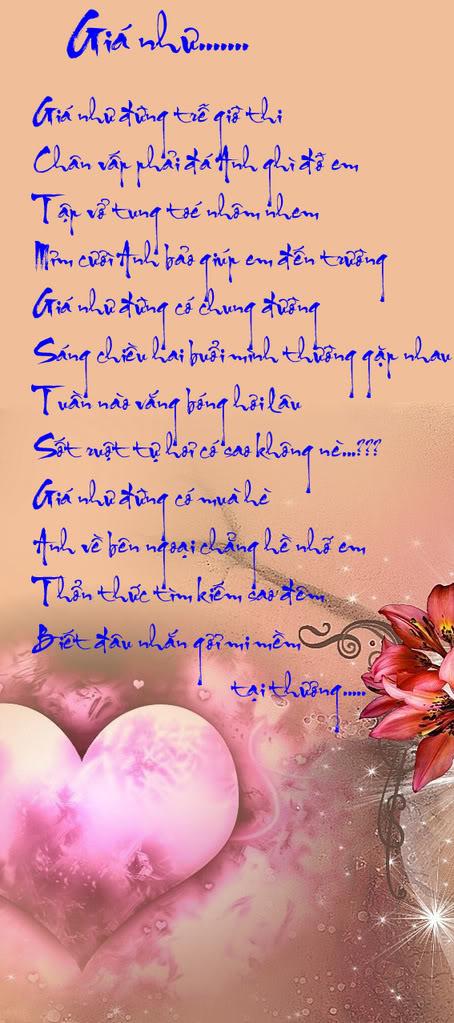 Giá như.......
Giá như đừng trễ giờ thi
Chân vấp phải đá Anh ghì đỡ em
Tập vở tung toé nhôm nhem
Mỉm cười Anh bảo giúp em đến trường
Giá như đừng có chung đường
Sáng chiều hai buổi mình thường gặp nhau
Tuần nào vắng bóng hơi lâu
Sốt ruột tự hỏi có sao không nè...???
Giá như đừng có muà hè
Anh về bên ngoại chẳng hề nhớ em
Thổn thức tìm kiếm sao đêm
Biết đâu nhắn gởi mi mềm
tại thương.....